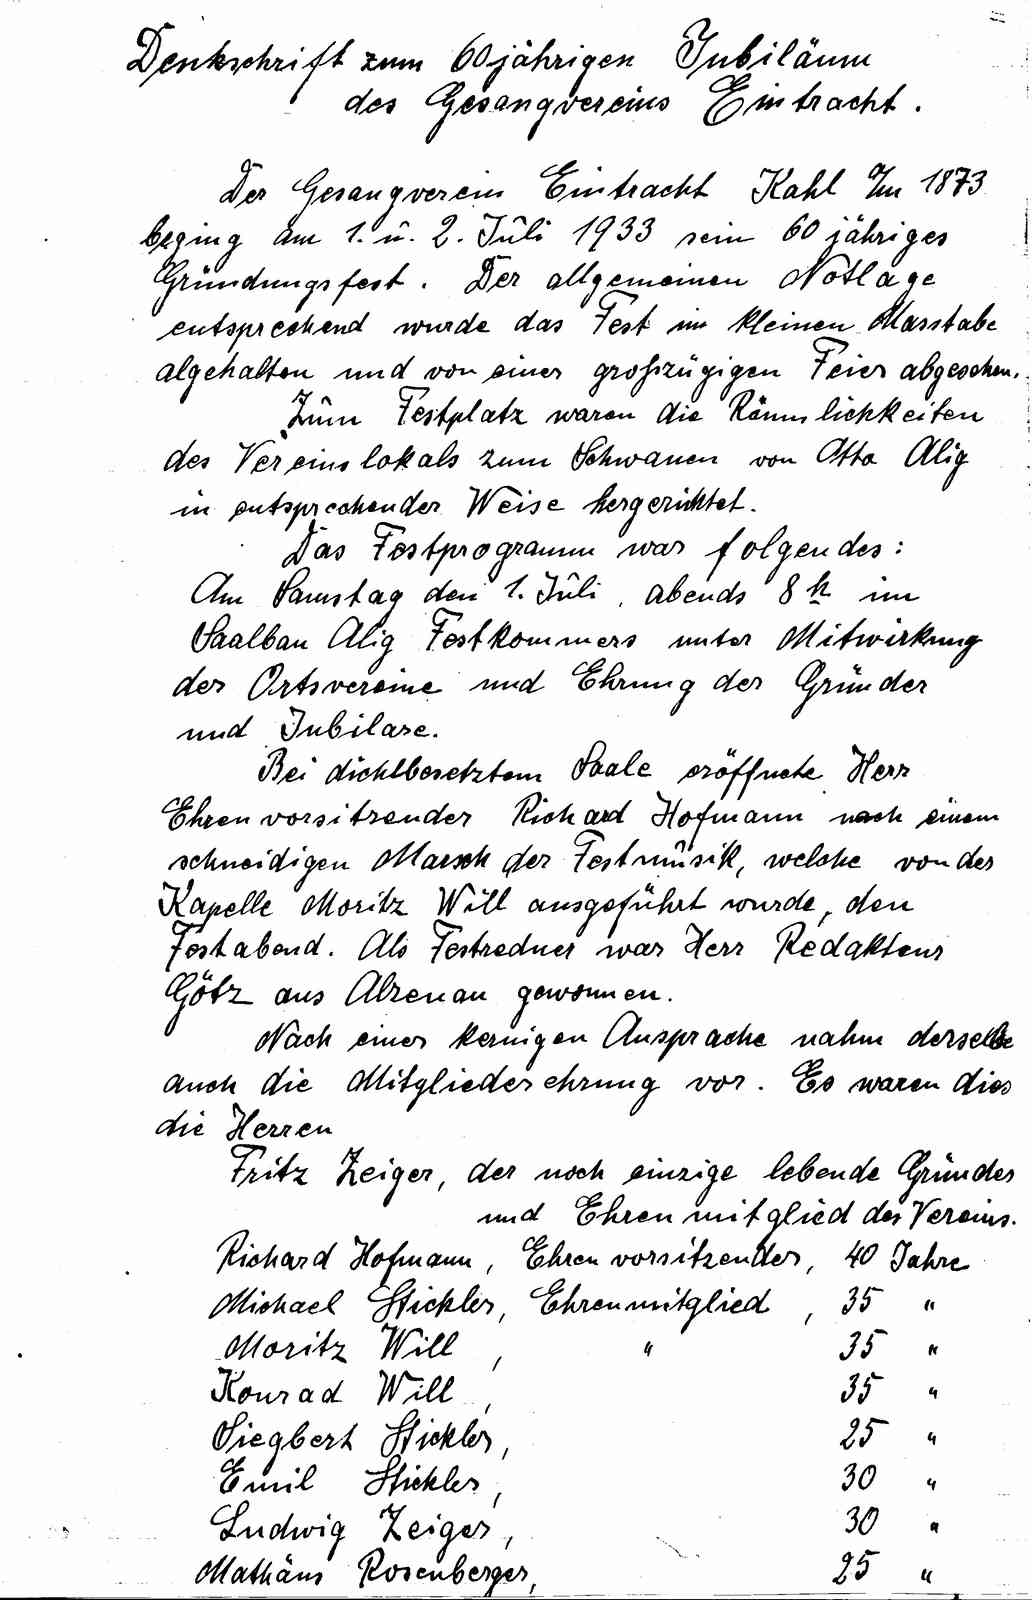 Denkschrift zum 60jährigen Jubiläum
des Gesangvereins Eintracht.
Der Gesangverein Eintracht Kahl Im 1873
beging am 1. u. 2. Juli 1933 sein 60 jähriges
Gründungsfest. Der allgemeinen Notlage
entsprechend wurde das Fest im kleinen Masstabe
abgehalten und von einer großzügigen Feier abgesehen.
Zum Festplatz waren die Räumlichkeiten
des Vereinslokals zum Schwanen von Otto Alig
in entsprechender Weise hergerichtet.
Das Festprogramm war folgendes:
Am Samstag den 1. Juli, abends 8 h im
Saalbau Alig Festkommers unter Mitwirkung
der Ortsvereine und Ehrung der Gründer
und Jubilare.
Bei dichtbesetztem Saale eröffnete Herr
Ehrenvorsitzender Richard Hofmann nach einem
schneidigen Marsch der Festmusik, welche von der
Kapelle Moritz Will ausgeführt wurde, den
Festabend. Als Festredner war Herr Redakteur
Götz aus Alzenau gewonnen.
Nach einer kernigen Ansprache nahm derselbe
auch die Mitgliederehrung vor. Es waren dies
die Herren
Fritz Zeiger, der noch einzige lebende Gründer
und Ehrenmitglied des Vereins.
Richard Hofmann, Ehrenvorsitzender, 40 Jahre
Michael Stickler, Ehrenmitglied, 35 "
Moritz Will, " 35 "
Konrad Will, 35 "
Siegbert Stickler, 25 "
Emil Stickler, 30 "
Ludwig Zeiger, 30 "
Mathäus Rosenberger, 25 "